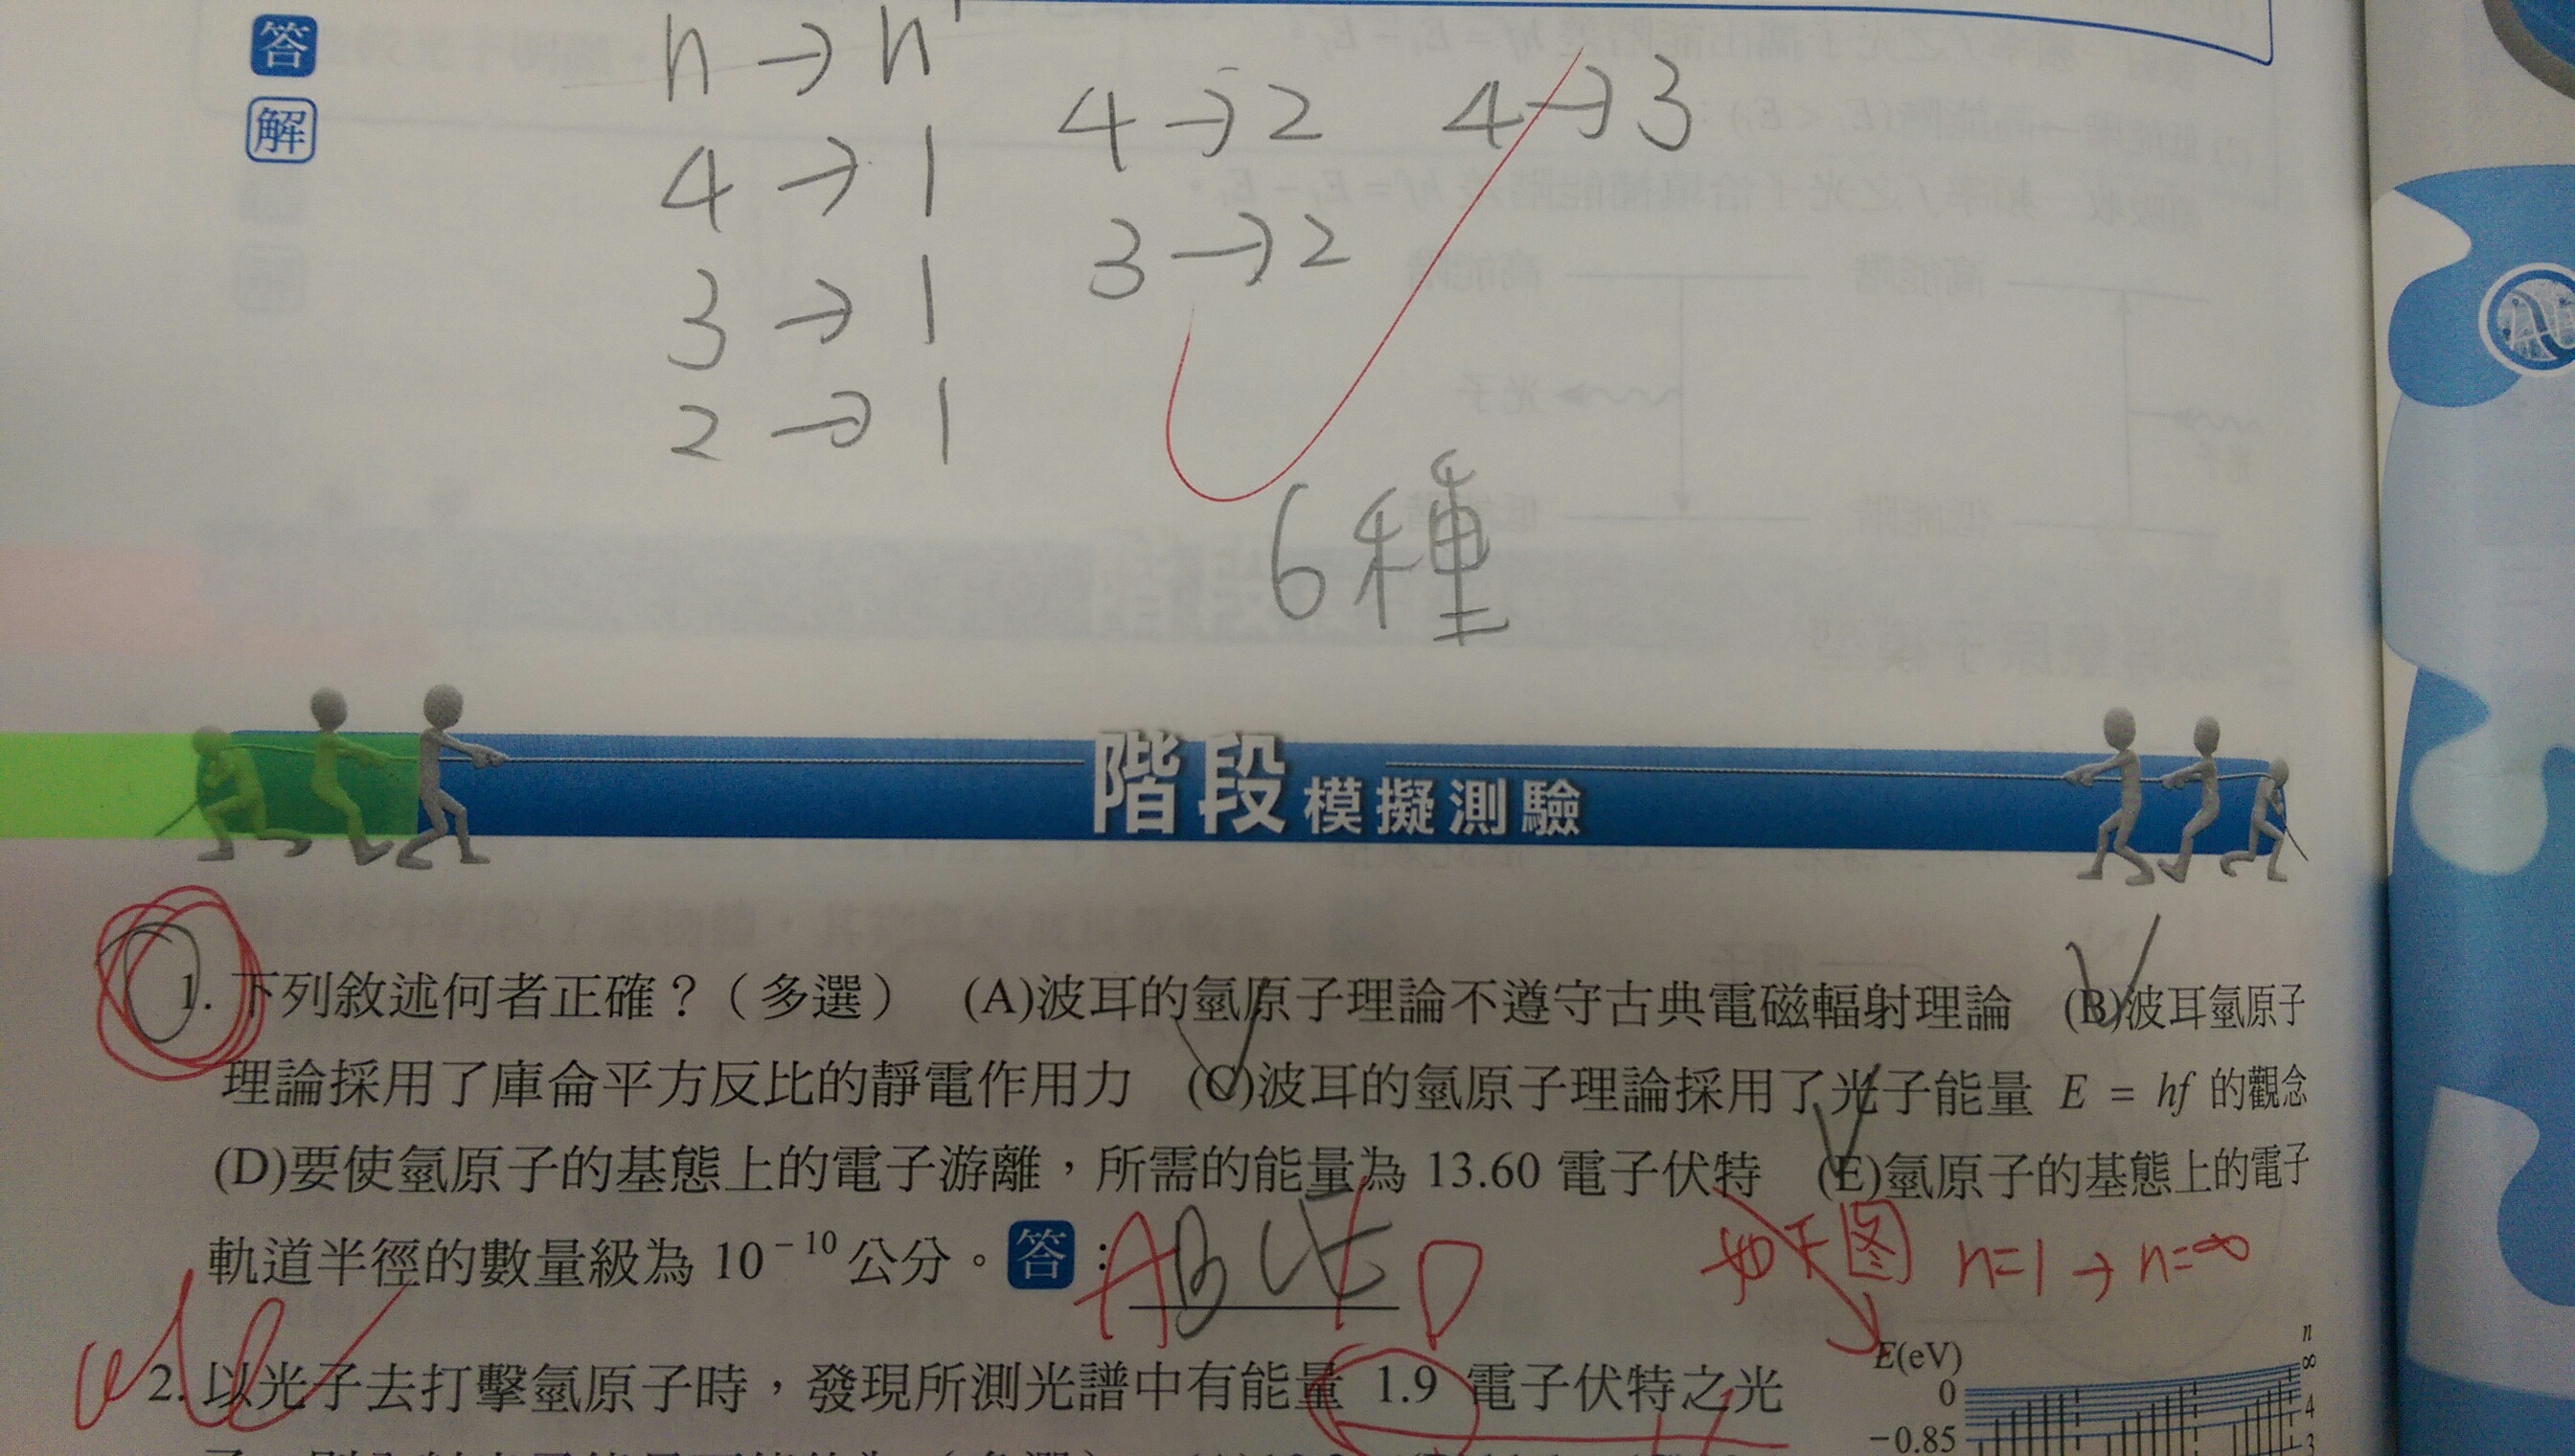 答
n → n'
解
4 → 2 4 → 3
4 → 1
3 → 2
3 → 1
2 → 1
6種
階段模擬測驗
1. 下列敘述何者正確？（多選） (A)波耳的氫原子理論不遵守古典電磁輻射理論 (B)波耳氫原子
理論採用了庫侖平方反比的靜電作用力 (C)波耳的氫原子理論採用了光子能量 E = hf 的觀念
(D)要使氫原子的基態上的電子游離，所需的能量為 13.60 電子伏特 (E)氫原子的基態上的電子
軌道半徑的數量級為 10⁻¹⁰ 公分。答：ABCE D
如下图 n=1 → n=∞
2. 以光子去打擊氫原子時，發現所測光譜中有能量 1.9 電子伏特之光
E(eV) n
0 ∞
-0.85 4
3